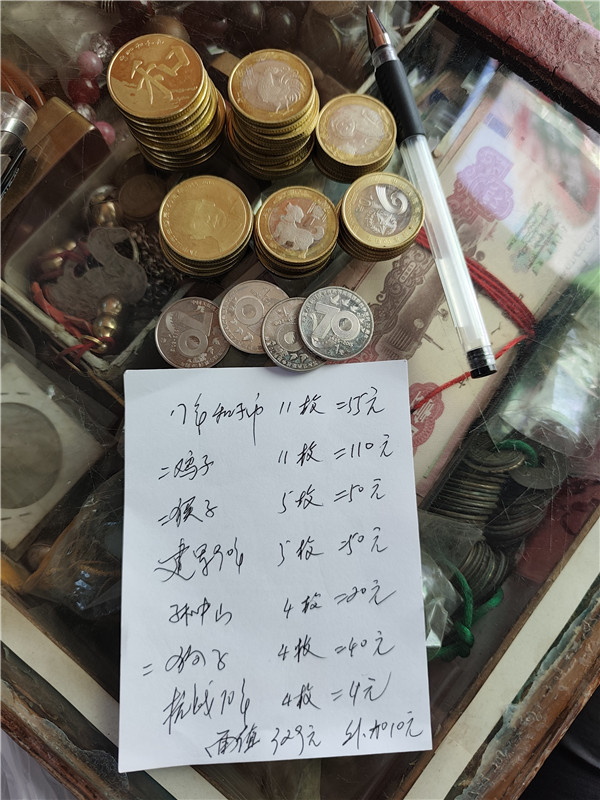 和
70
17年和字币 11枚=55元
二鸡子 11枚=110元
二猴子 5枚=50元
建军90年 5枚=50元
孙中山 4枚=20元
二狗子 4枚=40元
抗战70年 4枚=4元
面值329元 外加10元